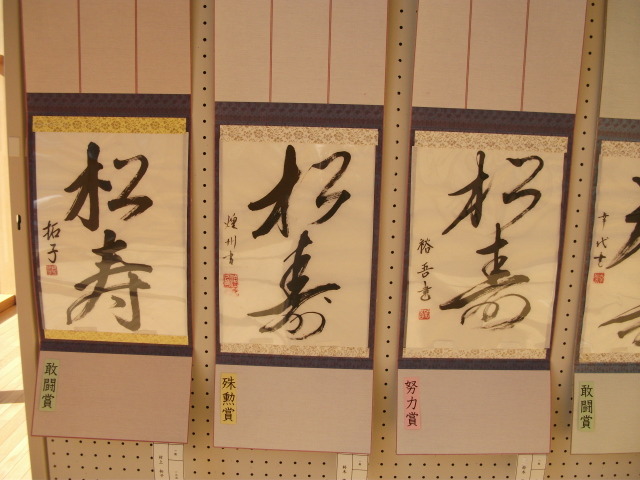 松寿
拓子
敢闘賞
松寿
煌州書
殊勲賞
松寿
裕吾書
努力賞
幸代書
敢闘賞